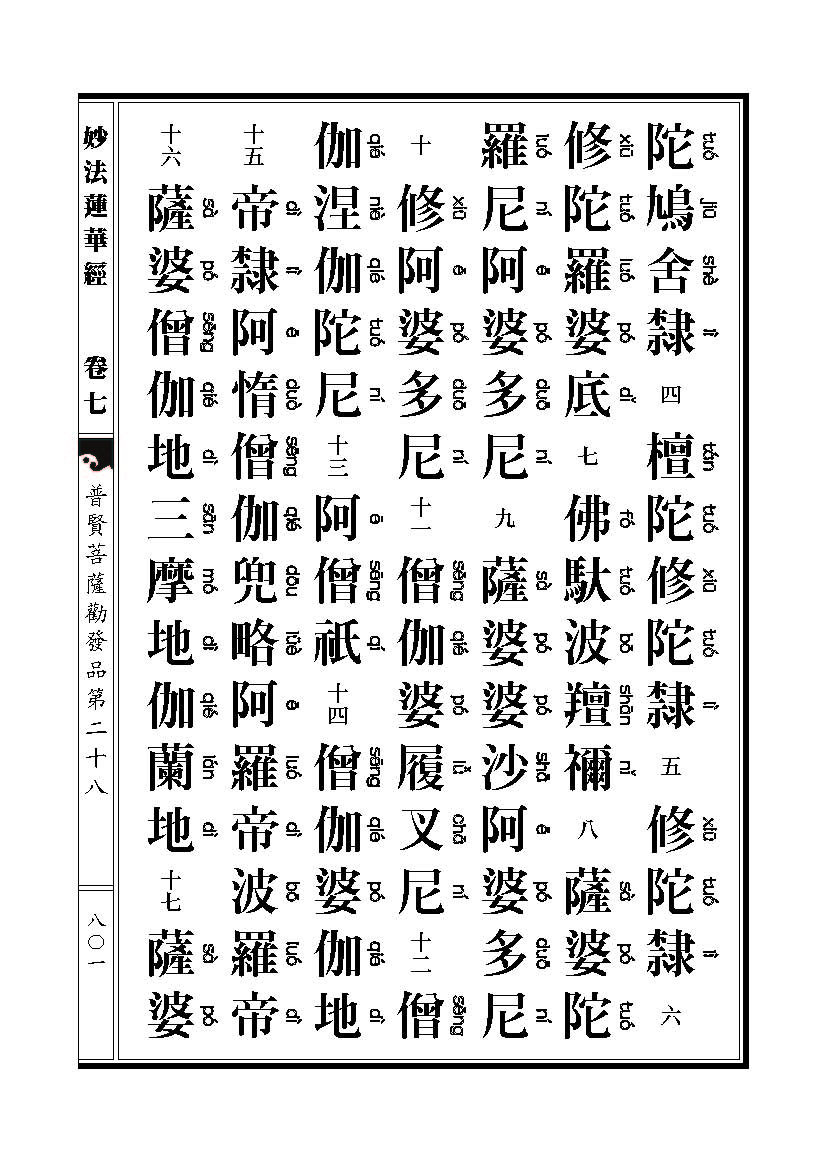 陀鳩舍隸四檀陀修陀隸五修陀隸六
tuó jiū shè lì tán tuó xiū tuó lì xiū tuó lì
修陀羅婆底七佛馱波羶禰八薩婆陀
xiū tuó luó pó dǐ fó tuó bō shān nǐ sà pó tuó
羅尼阿婆多尼九薩婆婆沙阿婆多尼
luó ní ē pó duō ní sà pó pó shā ē pó duō ní
十修阿婆多尼十一僧伽婆履叉尼十二僧
xiū ē pó duō ní sēng qié pó lǚ chā ní sēng
伽涅伽陀尼十三阿僧祇十四僧伽婆伽地
qié niè qié tuó ní ē sēng qí sēng qié pó qié dì
十五帝隸阿惰僧伽兜略阿羅帝波羅帝
dì lì ē duò sēng qié dōu lüè ē luó dì bō luó dì
十六薩婆僧伽地三摩地伽蘭地十七薩婆
sà pó sēng qié dì sān mó dì qié lán dì sà pó
妙法蓮華經 卷七
普賢菩薩勸發品第二十八
八〇一